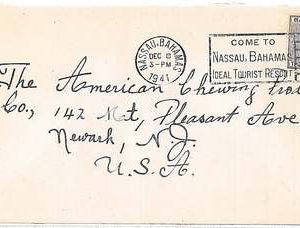 NASSAU. BAHAMAS
DEC 8
3-PM
1941
COME TO
NASSAU, BAHAMAS
IDEAL TOURIST RESORT
The American Chewing
Co., 142 Mt, Pleasant Ave
Newark, N.J.
U.S.A.